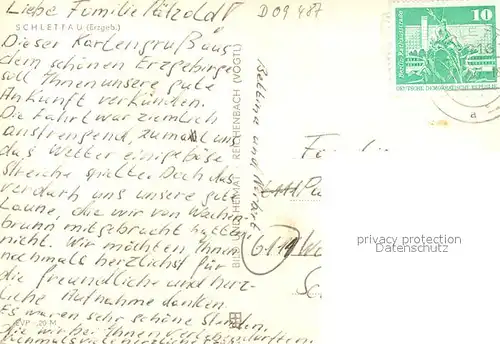 Liebe Familie Pätzold!
D 09 487
SCHLETTAU (Erzgeb.)
Dieser Kartengruß aus
dem schönen Erzgebirge
soll Ihnen unsere gute
Ankunft verkünden.
Die Fahrt war ziemlich
anstrengend, zumal uns
das Wetter einige böse
Streiche spielte. Doch das
verdarb uns unsere gute
Laune, die wir von
brunn mitgebracht hatten,
nicht. Wir möchten Ihnen
nochmals herzlichst für
die freundliche und herz-
liche Aufnahme danken.
Es waren sehr schöne Stunden,
die wir bei Ihnen verleben durften.
Nochmals vielen
EVP -,20 M
BILD UND HEIMAT REICHENBACH (VOGTL)
Bettina und
10
Berlin, Rathausstraße
DEUTSCHE DEMOKRATISCHE REPUBLIK
a
6111
privacy protection
Datenschutz